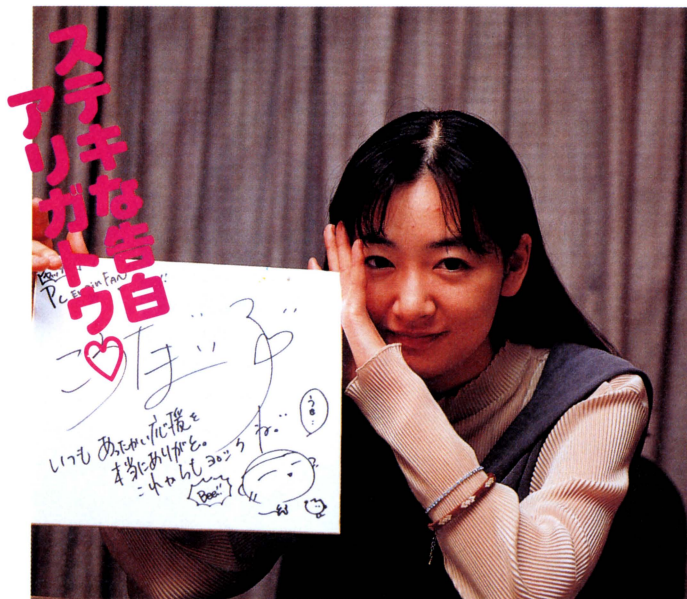 ステキな告白
アリガトウ♡
PC Engine FAN
いつも あったかい応援を
本当にありがと。
これからもヨロシクね。
うき
Bee!!